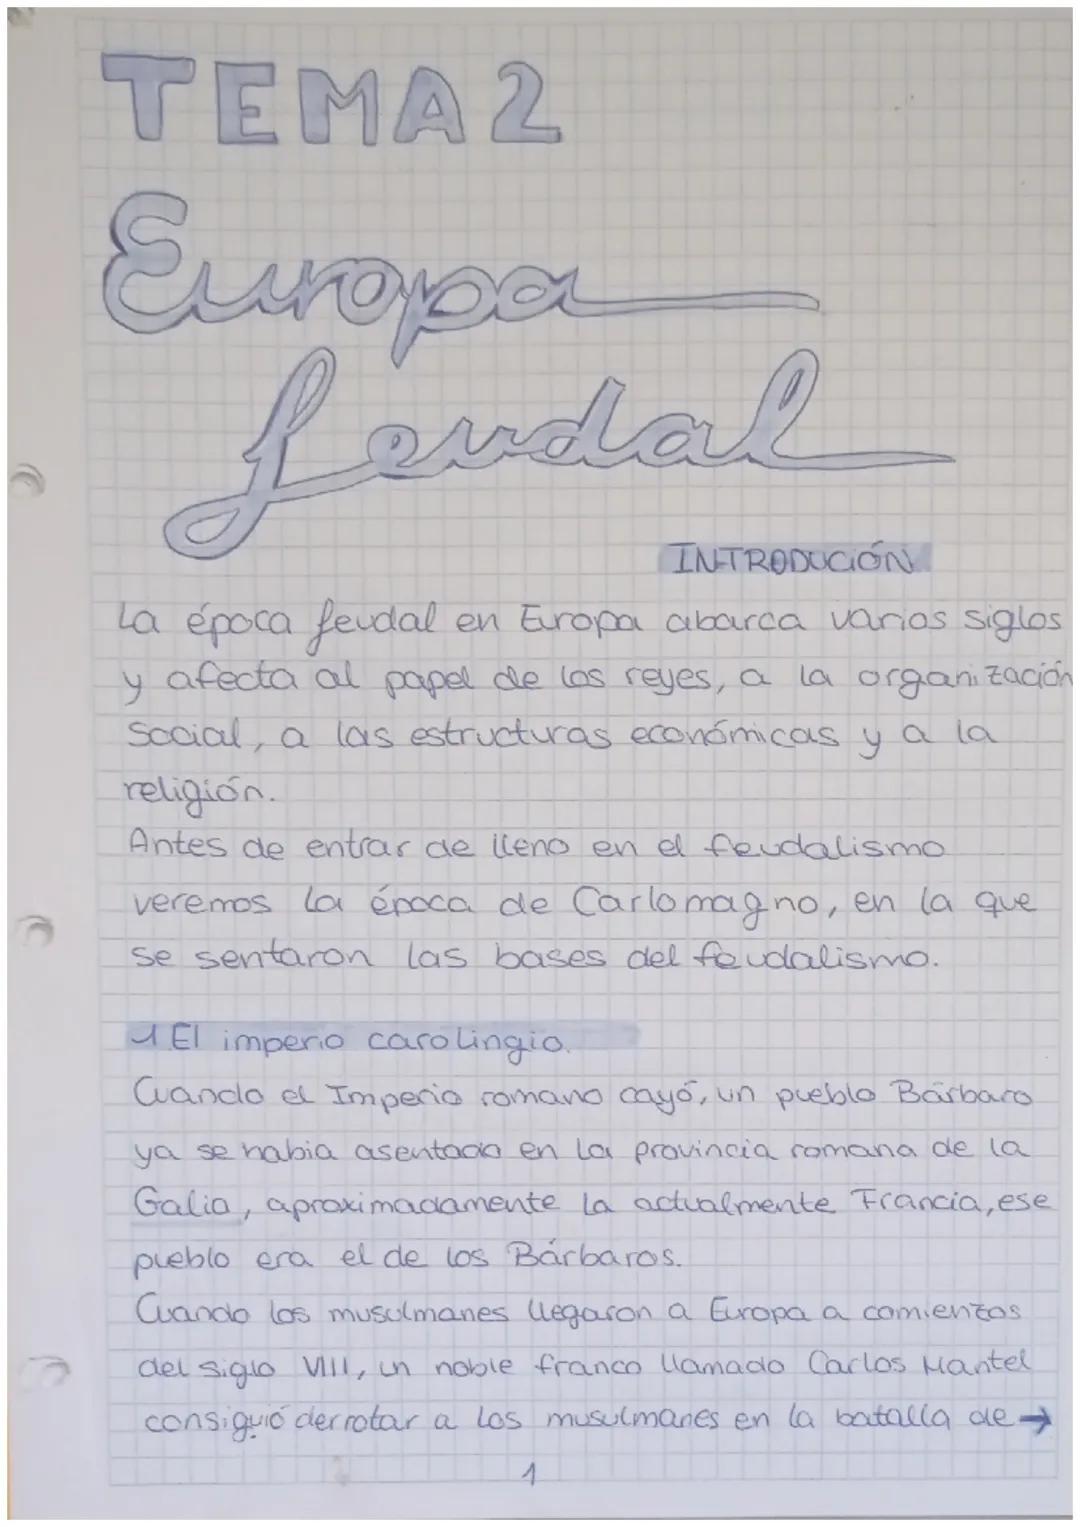 TEMA 2
Europa
feudal
INTRODUCIÓN
La época feudal en Europa abarca varios siglos
y afecta al papel de los reyes, a la organización
Social, a las estructuras económicas y a la
religión.
Antes de entrar de lleno en el feudalismo
veremos la época de Carlomagno, en la que
se sentaron las bases del feudalismo.
1 El imperio carolingio.
Cuando el Imperio romano cayó, un pueblo Bárbaro
ya se habia asentado en la provincia romana de la
Galia, aproximadamente la actualmente Francia, ese
pueblo era el de los Bárbaros.
Cuando los musulmanes llegaron a Europa a comienzos
del siglo VIII, un noble franco llamado Carlos Mantel
consiguió derrotar a los musulmanes en la batalla de →
1